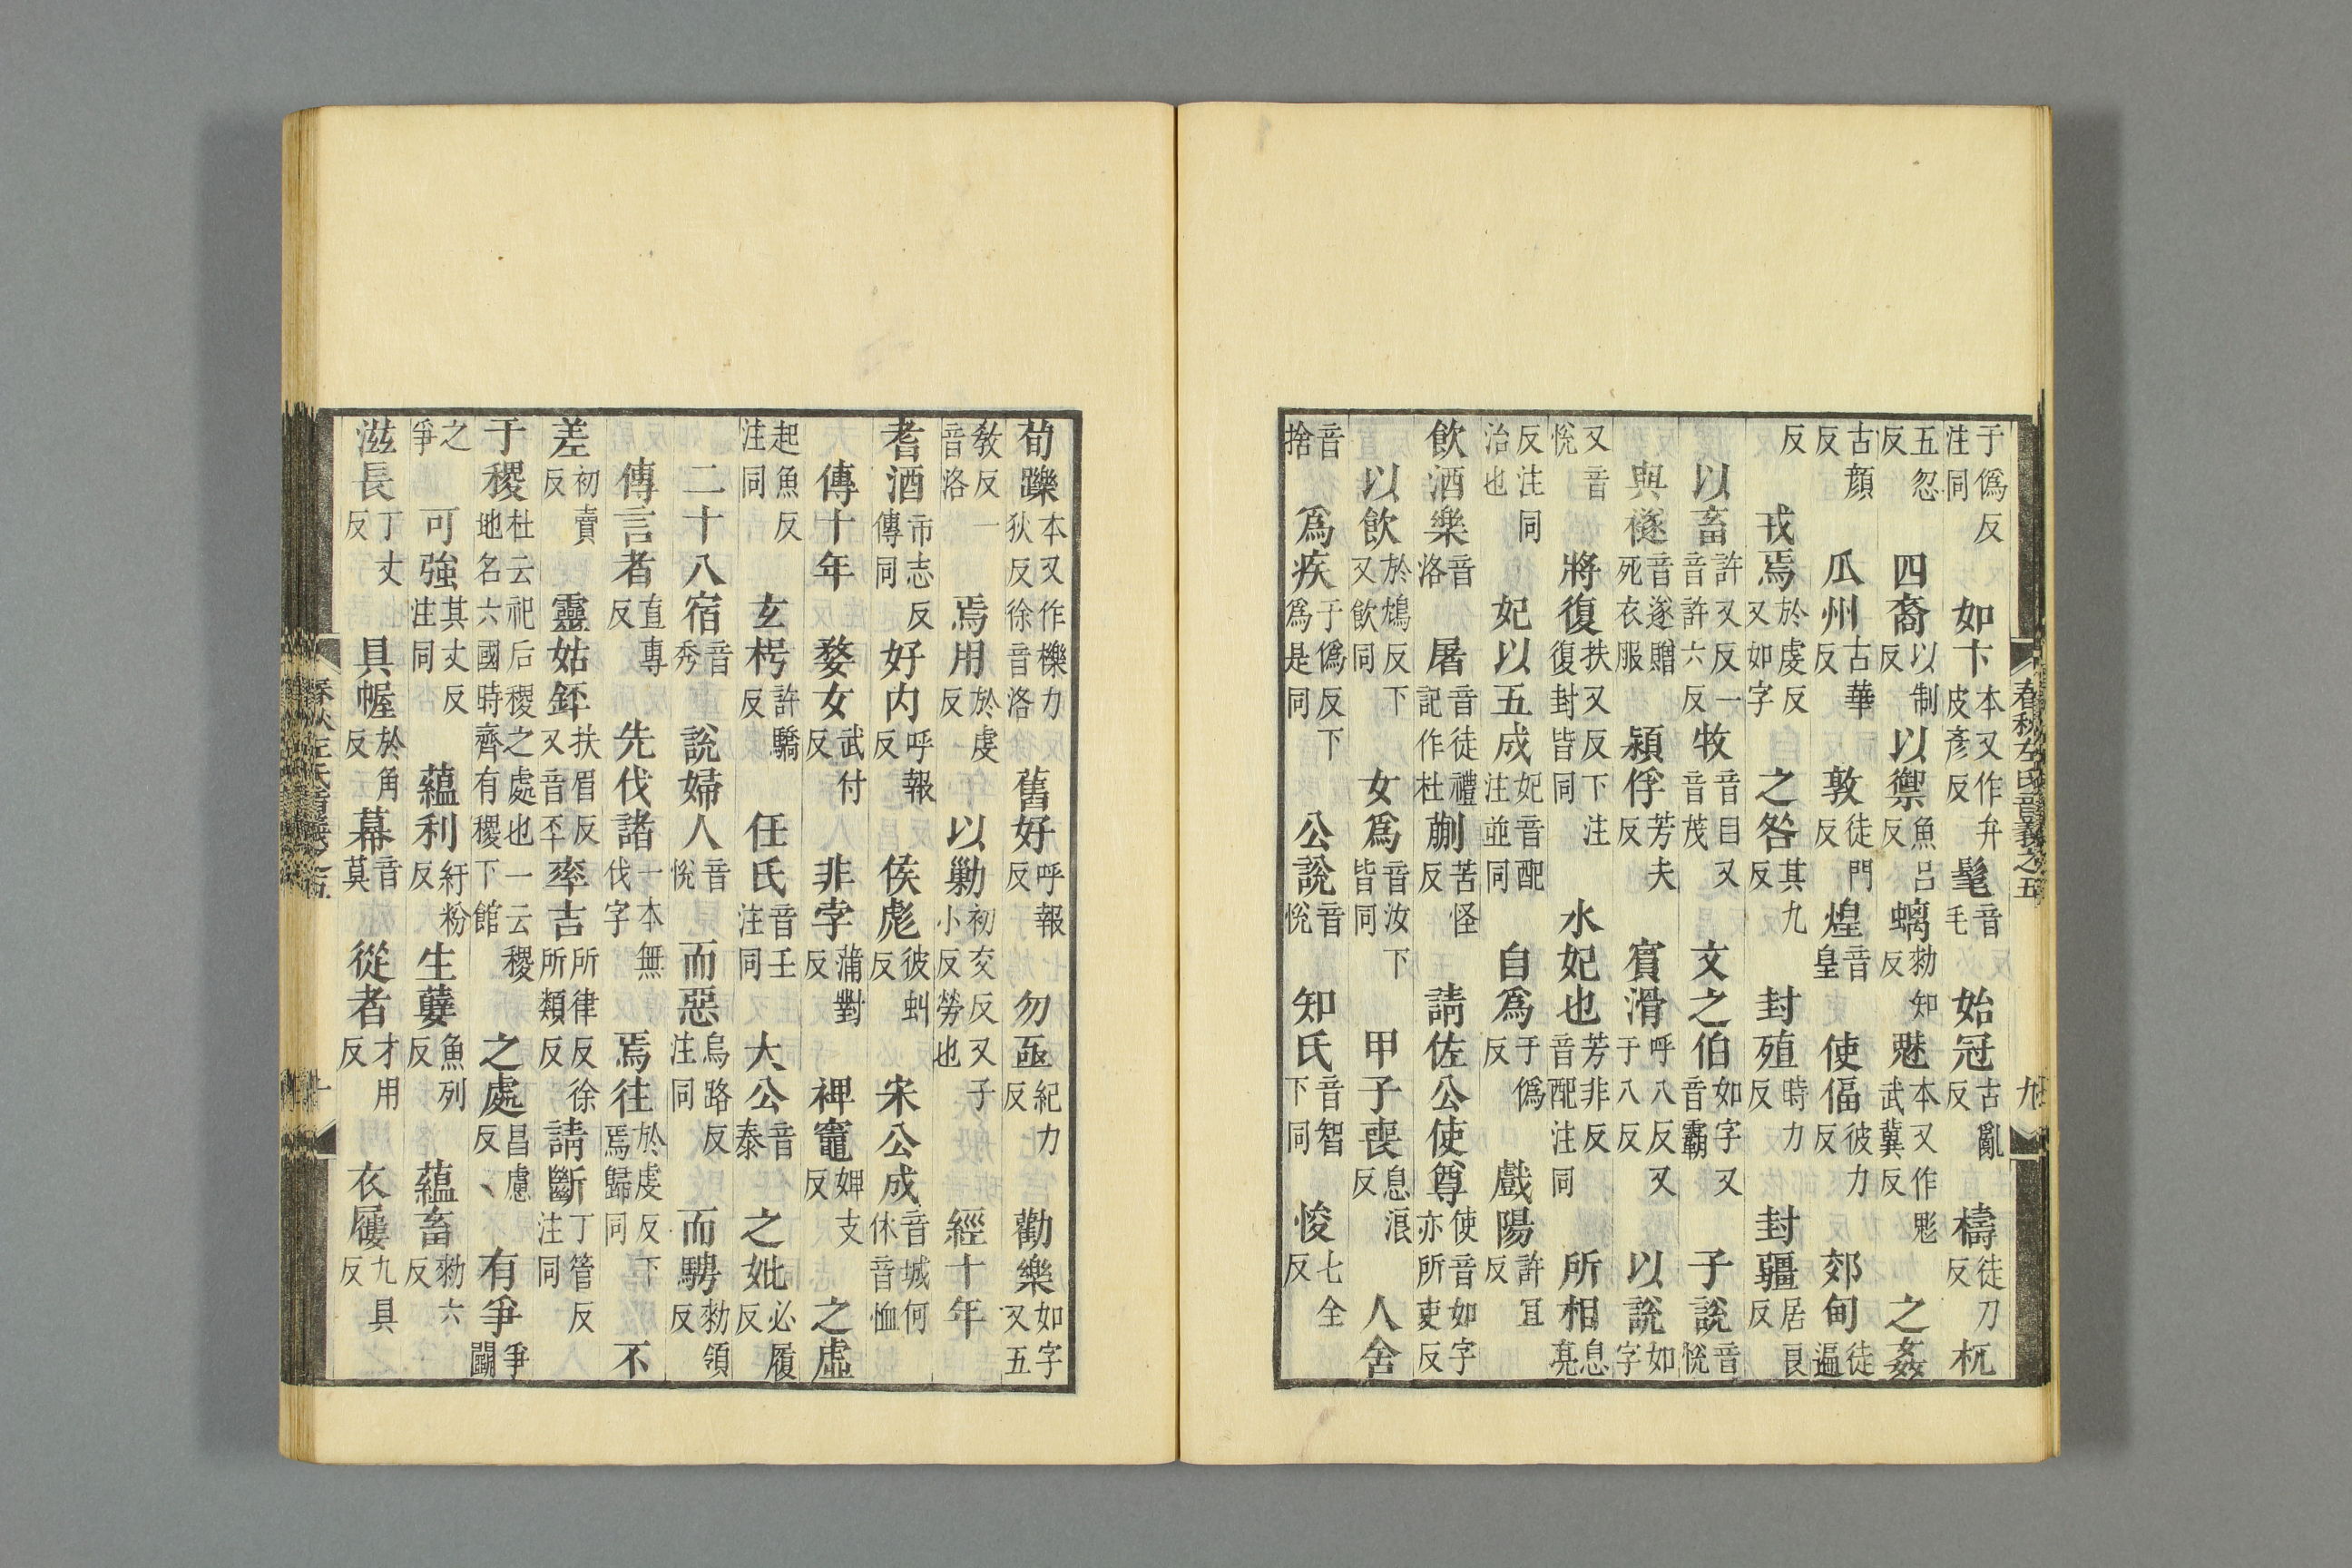 于僞反注同 如卞本又作弁皮彦反 髦音毛 始冠古亂反 檮徒刀反 杌
五忽反 四裔以制反 以禦魚吕反 螭勑知反 魅本又作鬽武冀反 之姦
古顔反 瓜州古華反 敦徒門反 煌音皇 使偪彼力反 郊甸徒遍
反 戎焉於虔反又如字 之咎其九反 封殖時力反 封疆居良反
以畜許又反一音許六反 牧音目又音茂 文之伯如字又音霸 子說音悅
與襚音遂贈死衣服 潁俘芳夫反 賓滑呼八反又于八反 以說如字
又音悅 將復扶又反下注復封皆同 水妃也芳非反音配注同 所相息亮
反注同治也 妃以五成妃音配注並同 自爲于僞反 戲陽許宜反
飲酒樂音洛 屠音徒禮記作杜 蒯苦怪反 請佐公使尊使音如字亦所吏反
以飲於鴆反下又飲同 女爲音汝下皆同 甲子喪息浪反 人舍
音捨 爲疾于僞反下爲是同 公說音悅 知氏音智下同 悛七全反
春秋左氏音義之五 九
荀躒本又作櫟力狄反徐音洛 舊好呼報反 勿亟紀力反 勸樂如字又五
敎反一音洛 焉用於虔反 以勦初交反又子小反勞也 經十年
耆酒市志反傳同 好内呼報反 侯彪彼虯反 宋公成音城何休音恤
傳十年 婺女武付反 非孛蒲對反 裨竈婢支反 之虛
起魚反注同 玄枵許驕反 任氏音壬注同 大公音泰 之妣必履反
二十八宿音秀 說婦人音悅 而惡烏路反注同 而騁勑領反
傳言者直專反 先伐諸一本無伐字 焉往於虔反下焉歸同 不
差初賣反 靈姑銔扶眉反又音丕 率吉所律反徐所類反 請斷丁管反注同
于稷杜云祀后稷之處也一云稷地名六國時齊有稷下館 之處昌慮反 有爭爭鬭
之爭 可強其丈反注同 蘊利紆粉反 生孽魚列反 蘊畜勑六反
滋長丁丈反 具幄於角反 幕音莫 從者才用反 衣屨九具反
春秋左氏音義之五 十